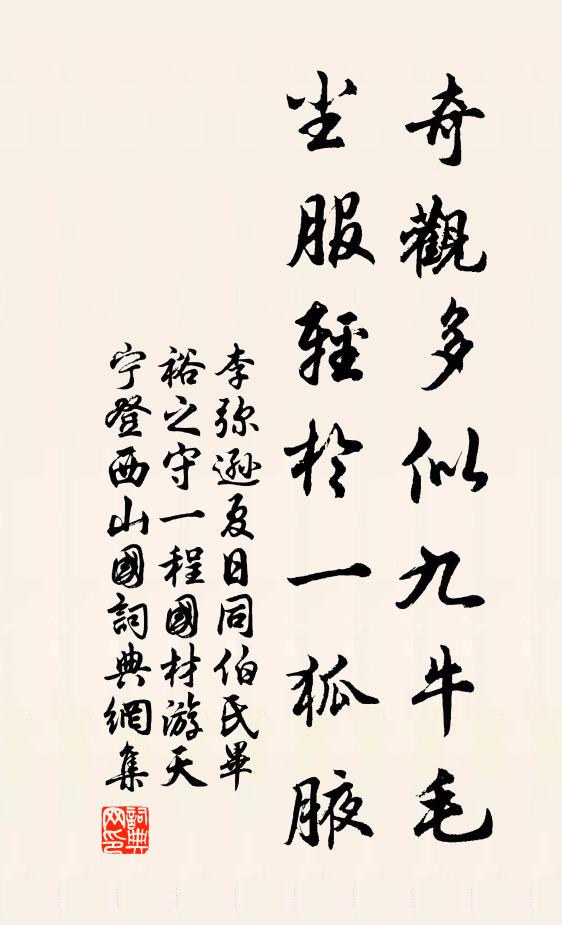 奇觀多似九牛毛
尘服輕於一狐腋
李弥遜夏日同伯氏畢
裕之守一程國材游天
宁登西山國詞典網集
詞典网印